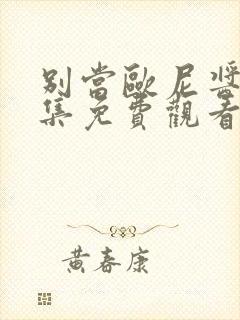 別當歐尼醬
集免費觀看
黃春康